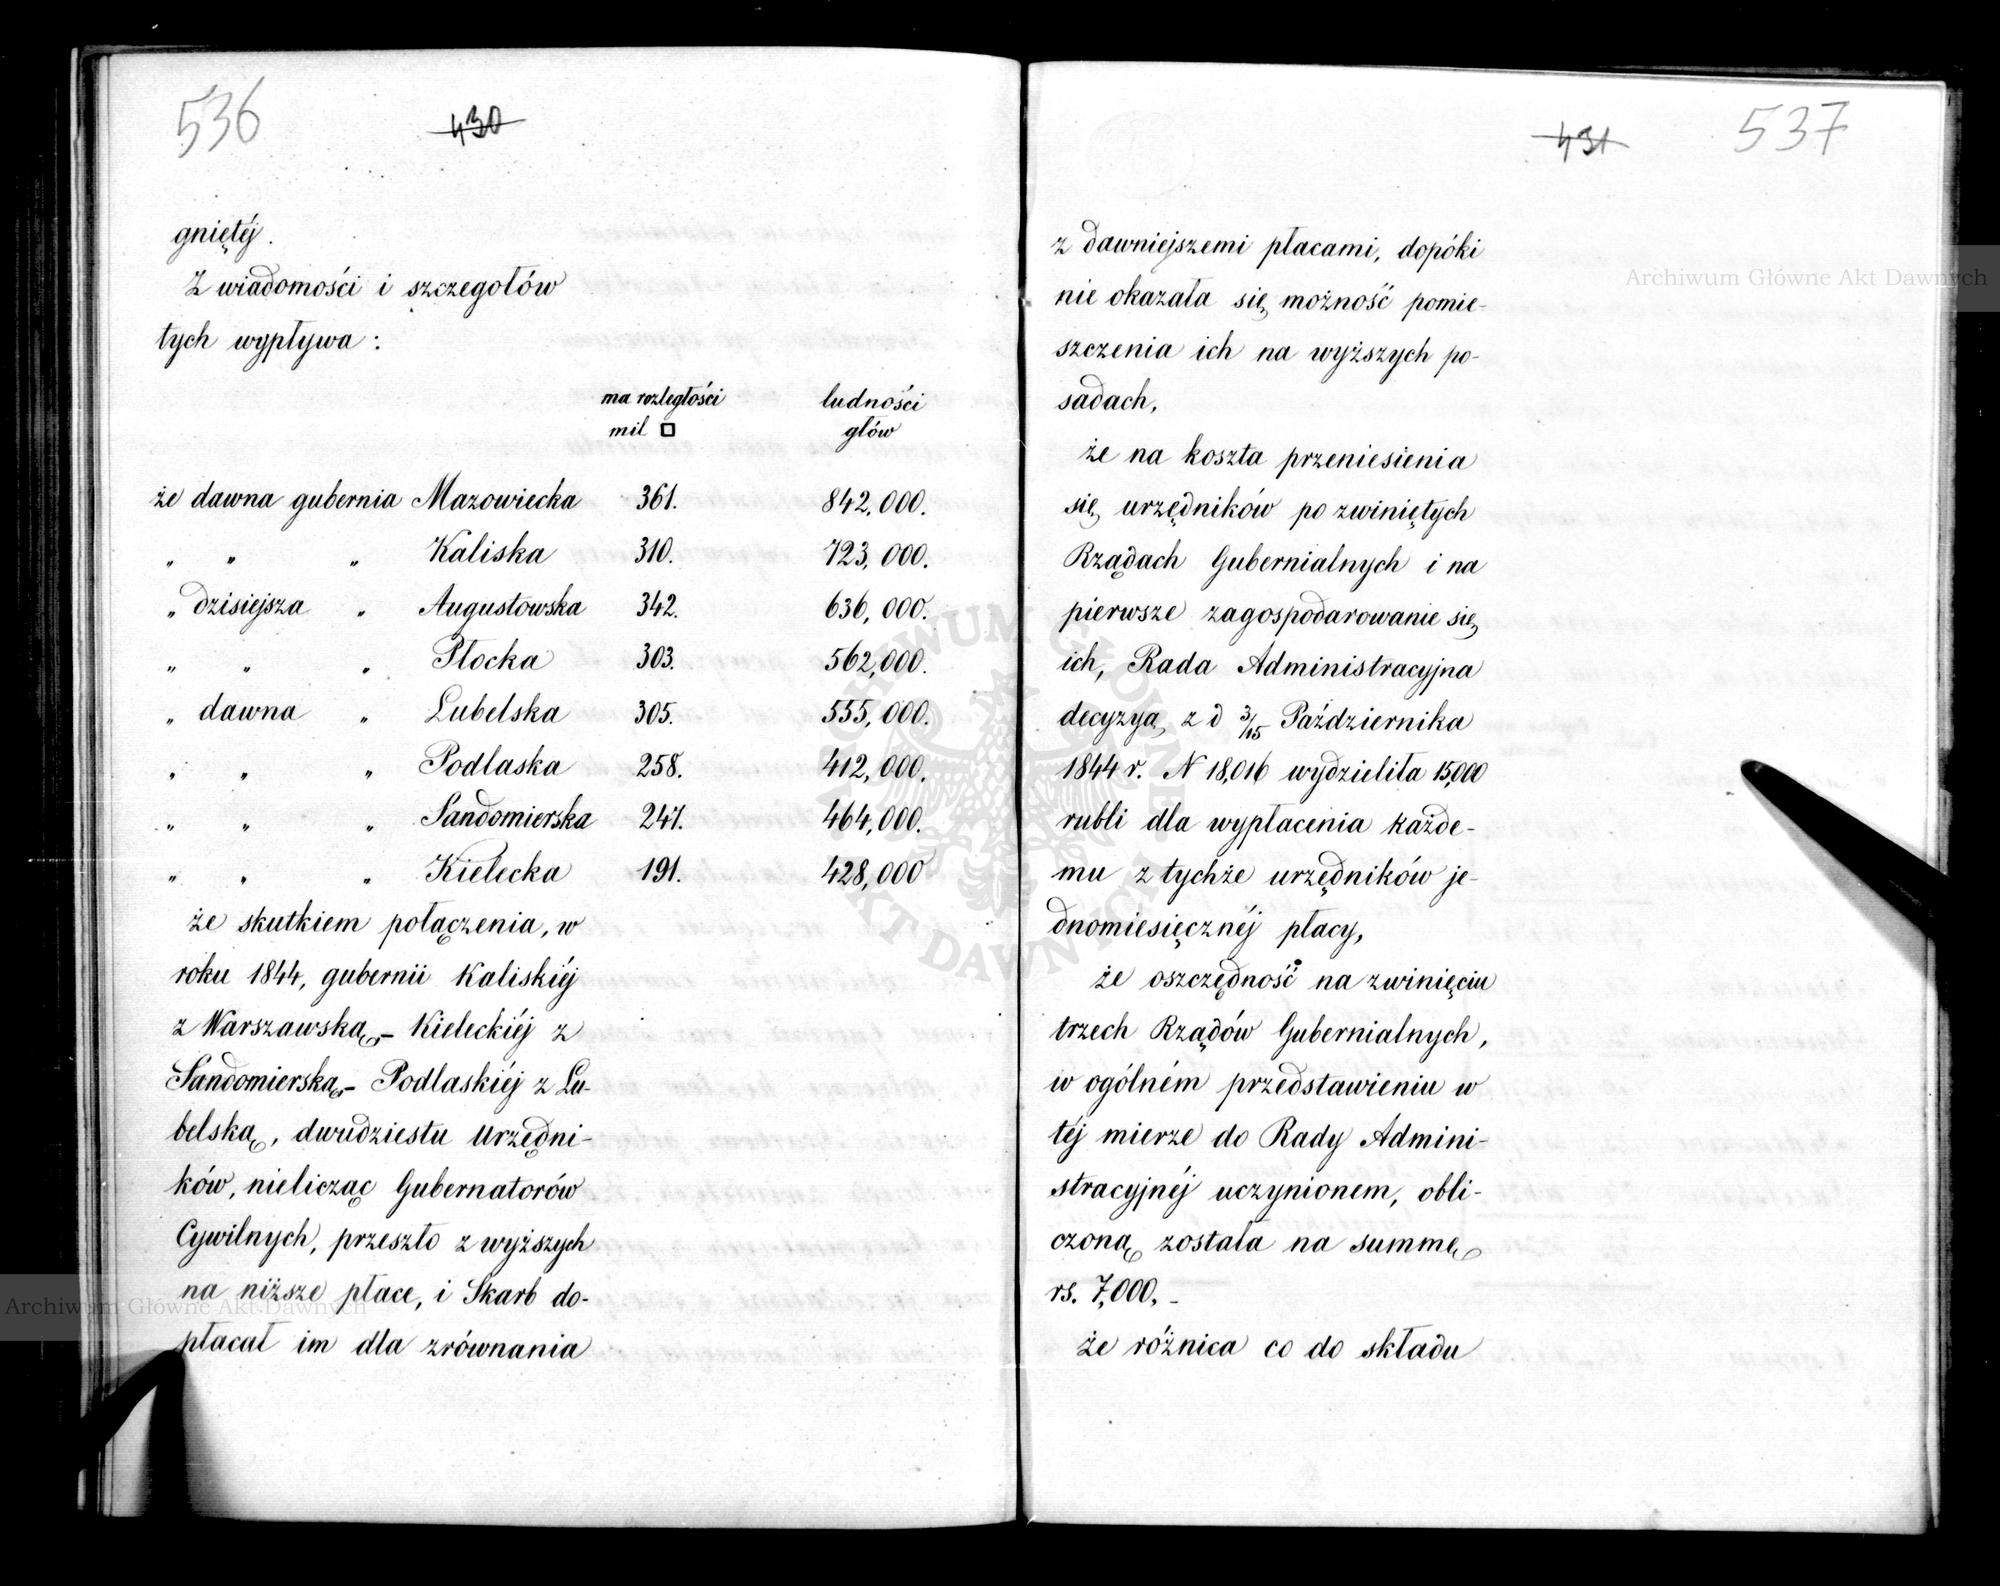 536
430
gniętéj.
Z wiadomości i szczegołów
tych wypływa :
ma rozległości ludności
mil □ głów
że dawna gubernia Mazowiecka 361. 842,000.
„ „ „ Kaliska 310. 723,000.
„ dzisiejsza „ Augustowska 342. 636,000.
„ „ „ Płocka 303. 562,000.
„ dawna „ Lubelska 305. 555,000.
„ „ „ Podlaska 258. 412,000.
„ „ „ Sandomierska 247. 464,000.
„ „ „ Kielecka 191. 428,000
że skutkiem połączenia, w
roku 1844, gubernii Kaliskiéj
z Warszawską,- Kieleckiéj z
Sandomierską,- Podlaskiéj z Lu-
belską, dwudziestu Urzędni-
ków, nielicząc Gubernatorów
Cywilnych, przeszło z wyższych
na niższe płace, i Skarb do-
płacał im dla zrównania
431
537
z dawniejszemi płacami, dopóki
nie okazała się możność pomie-
szczenia ich na wyższych po-
sadach,
że na koszta przeniesienia
się urzędników po zwiniętych
Rządach Gubernialnych i na
pierwsze zagospodarowanie się
ich, Rada Administracyjna
decyzyą z d 3/15 Października
1844 r. N 18,016 wydzieliła 15,000
rubli dla wypłacenia każde-
mu z tychże urzędników je-
dnomiesięcznéj płacy,
że oszczędność na zwinięciu
trzech Rządów Gubernialnych,
w ogólném przedstawieniu w
téj mierze do Rady Admini-
stracyjnéj uczynionem, obli-
czoną została na summę
rs. 7,000. -
że różnica co do składu
Archiwum Główne Akt Dawnych
Archiwum Główne Akt Dawnych
ARCHIWUM GŁÓWNE AKT DAWNYCH